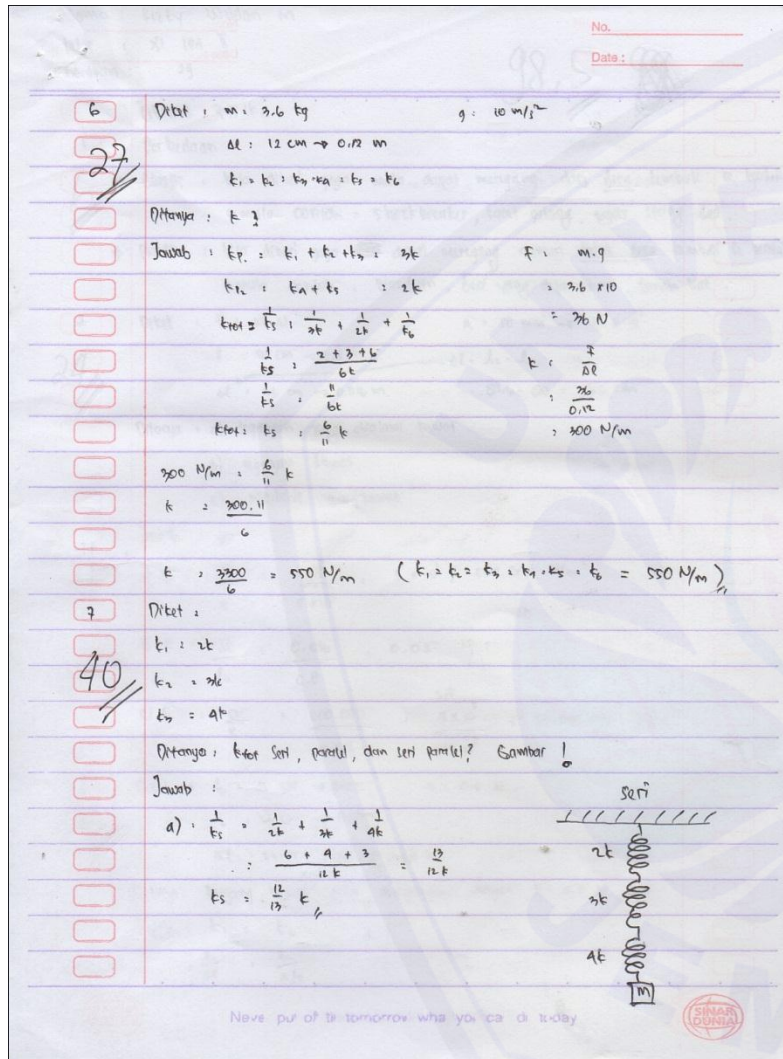 No.
Date :
6 Diket : m : 3,6 kg g : 10 m/s²
Δl : 12 cm → 0,12 m
27
k₁ = k₂ = k₃ = k₄ = k₅ = k₆
Ditanya : k ?
Jawab : kp. : k₁ + k₂ + k₃ : 3k F : m.g
k₄ + k₅ : 2k 3,6 x 10
ktot = 1/ks : 1/3k + 1/2k + 1/k₆ = 36 N
1/ks : 2 + 3 + 6 / 6k k : F/Δl
1/ks : 11/6k : 36/0,12
ktot : ks : 6/11 k : 300 N/m
300 N/m : 6/11 k
k : 300.11 / 6
k : 3300/6 = 550 N/m (k₁ = k₂ = k₃ = k₄ = k₅ = k₆ = 550 N/m)
7 Diket :
k₁ : 2k
40
k₂ = 3k
k₃ = 4k
Ditanya : ktot Seri, paralel, dan seri paralel? Gambar !
Jawab : seri
a) . 1/ks = 1/2k + 1/3k + 1/4k
2k
: 6 + 4 + 3 / 12k = 13/12k
ks = 12/13 k
3k
4k
m
Neve pu of to tomorrow wha yo ca do today
SINAR DUNIA